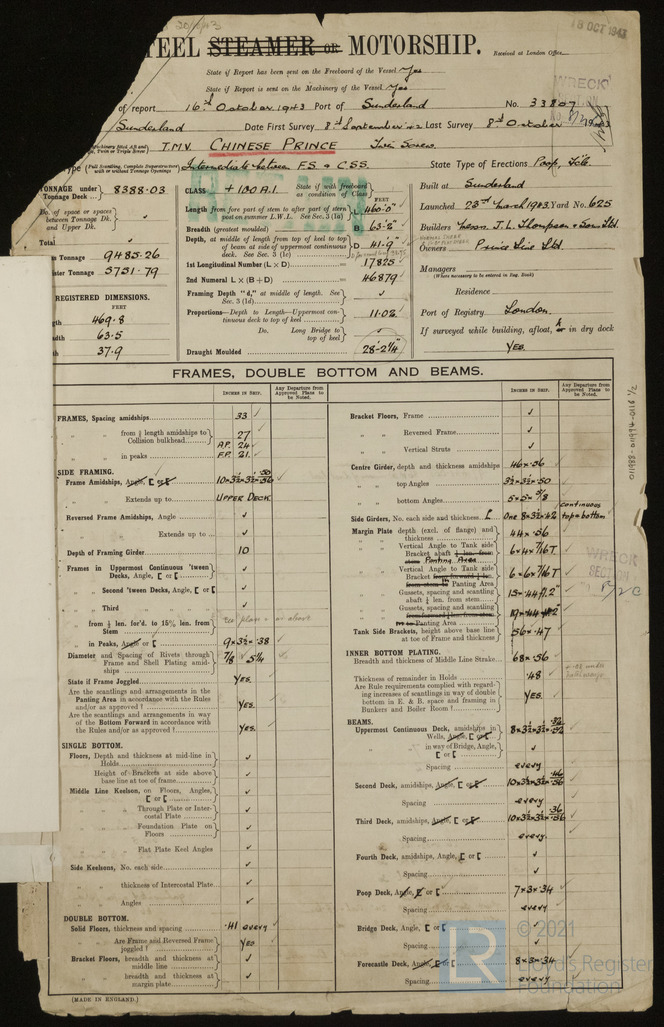 20/10/43
18 OCT 1943
TEEL STEAMER OR MOTORSHIP.
Received at London Office
State if Report has been sent on the Freeboard of the Vessel Yes
State if Report is sent on the Machinery of the Vessel Yes
WRECK
of report 16th October 1943 Port of Sunderland No. 33807
Sunderland Date First Survey 8th September '42 Last Survey 8th October 1943
T.M.V. CHINESE PRINCE Twin Screw.
(Full Scantling, Complete Superstructure with or without Tonnage Openings) Intermediate between F.S. & C.S.S. State Type of Erections Poop, Fcle.
TONNAGE under Tonnage Deck 8388.03
Do. of space or spaces between Tonnage Dk. and Upper Dk.
Total
Tonnage 9485.26
ister Tonnage 5751.79
REGISTERED DIMENSIONS.
FEET
gth 469.8
adth 63.5
th 37.9
CLASS +100A.1. State if with freeboard as condition of Class
FEET
Length from fore part of stem to after part of stern post on summer L.W.L. See Sec. 3 (1a) L 460.0"
Breadth (greatest moulded) B 63.2"
Depth, at middle of length from top of keel to top of beam at side of uppermost continuous deck. See Sec. 3 (1c) D 41.9"
1st Longitudinal Number (L × D) = 17825
2nd Numeral L × (B + D) = 46879
Framing Depth "d," at middle of length. See Sec. 3 (1d)
Proportions—Depth to Length—Uppermost continuous deck to top of keel 11.02
Do. Long Bridge to top of keel
Draught Moulded 28-2¼"
Built at Sunderland
Launched 28th March 1943. Yard No. 625
Builders Messrs. J. L. Thompson & Sons Ltd.
Owners Prince Line Ltd.
Managers
(Where necessary to be entered in Reg. Book)
Residence
Port of Registry London.
If surveyed while building, afloat, & or in dry dock
YES.
FRAMES, DOUBLE BOTTOM AND BEAMS.
INCHES IN SHIP. Any Departure from Approved Plans to be Noted.
FRAMES, Spacing amidships 33
from ⅕ length amidships to Collision bulkhead 27
in peaks A.P. 24 F.P. 21.
SIDE FRAMING.
Frame Amidships, Angle, [ or [
Extends up to UPPER DECK
Reversed Frame Amidships, Angle
Extends up to
Depth of Framing Girder 10
Frames in Uppermost Continuous 'tween Decks, Angle, [ or [
Second 'tween Decks, Angle, [ or [
Third
from ⅕ len. for'd. to 15% len. from Stem See plan as above
in Peaks, Angle or [ 9×3½×.38
Diameter and Spacing of Rivets through Frame and Shell Plating amidships 7/8 5¼
State if Frame Joggled YES.
Are the scantlings and arrangements in the Panting Area in accordance with the Rules and/or as approved? YES.
Are the scantlings and arrangements in way of the Bottom Forward in accordance with the Rules and/or as approved? YES.
SINGLE BOTTOM.
Floors, Depth and thickness at mid-line in Holds
Height of Brackets at side above base line at toe of frame
Middle Line Keelson, on Floors, Angles, [ or [
Through Plate or Intercostal Plate
Foundation Plate on Floors
Flat Plate Keel Angles
Side Keelsons, No. each side
thickness of Intercostal Plate
Angles
DOUBLE BOTTOM.
Solid Floors, thickness and spacing .41 every
Are Frame and Reversed Frame joggled? YES
Bracket Floors, breadth and thickness at middle line
breadth and thickness at margin plate
(MADE IN ENGLAND.)
INCHES IN SHIP. Any Departure from Approved Plans to be Noted.
Bracket Floors, Frame
Reversed Frame
Vertical Struts
Centre Girder, depth and thickness amidships 46×.56
top Angles 3½×3½×.50
bottom Angles 5×5×5/8
Side Girders, No. each side and thickness One 8×3½×.42 continuous top & bottom
Margin Plate depth (excl. of flange) and thickness 44×.56
Vertical Angle to Tank side Bracket abaft ¼ len. from stem Panting Area 6×4×7/16 T
Vertical Angle to Tank side Bracket from forward ¼ len. from stem to Panting Area 6×6×7/16 T
Gussets, spacing and scantling abaft ¼ len. from stem
Gussets, spacing and scantling from forward ¼ len. from stem to Panting Area
Tank Side Brackets, height above base line at toe of Frame and thickness 56×.47
INNER BOTTOM PLATING.
Breadth and thickness of Middle Line Strake 68×.56
Thickness of remainder in Holds .48
Are Rule requirements complied with regarding increases of scantlings in way of double bottom in E. & B. space and framing in Bunkers and Boiler Room? YES.
BEAMS.
Uppermost Continuous Deck, amidships in Wells, Angle, [ or [
in way of Bridge, Angle, [ or [
Spacing every
Second Deck, amidships, Angle, [ or [
Spacing every
Third Deck, amidships, Angle, [ or [
Spacing every.
Fourth Deck, amidships, Angle, [ or [
Spacing
Poop Deck, Angle, [ or [ 7×3×.34
Spacing every
Bridge Deck, Angle, [ or [
Spacing
Forecastle Deck, Angle, [ or [ 8×3×.34
Spacing every
011988-011994-0116 1/2
WRECK
SECTION
LR
© 2021
Lloyd's Register
Foundation